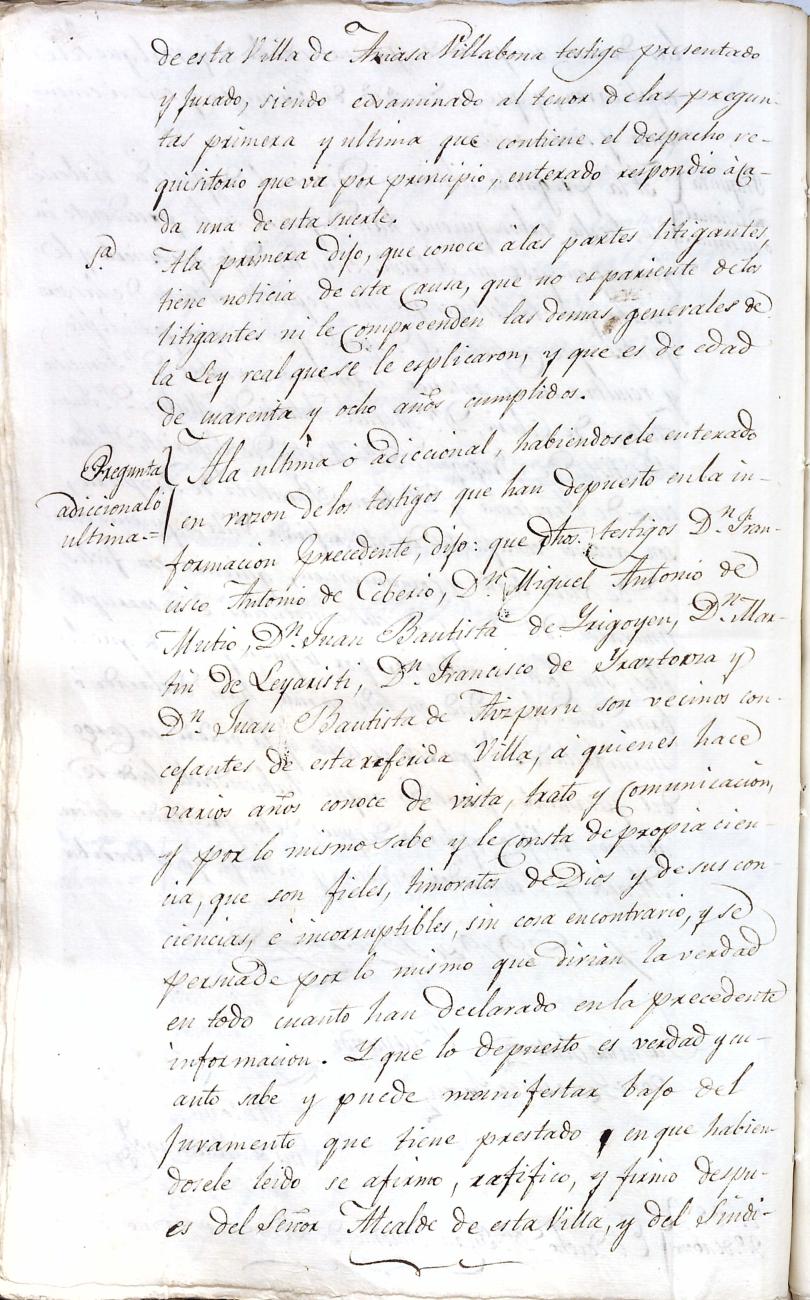 de esta Villa de Amasa Villabona testigo presentado
y Jurado, siendo examinado al tenor de las pregun-
tas primera y ultima que contiene el despacho re-
quisitorio que va por principio, enterado respondio à ca-
da una de esta suerte.
1ª
Ala primera dijo, que conoce alas partes litigantes,
tiene noticia de esta Causa, que no es pariente delos
litigantes ni le Compreenden las demas generales de
la Ley real que se le esplicaron, y que es de edad
de cuarenta y ocho años cumplidos.
Pregunta
adiccional ó
ultima.=
Ala ultima ò adiccional, habiendosele enterado
en razon delos testigos que han depuesto en la in-
formacion precedente, dijo: que dhos. testigos Dn. Fran-
cisco Antonio de Ceberio, Dn. Miguel Antonio de
Mutio, Dn. Juan Bautista de Yrigoyen, Dn. Mar-
tin de Leyaristi, Dn. Francisco de Yraztorza y
Dn. Juan Bautista de Aizpuru son vecinos con-
cejantes de esta referida Villa, á quienes hace
varios años conoce de vista, trato y Comunicacion,
y por lo mismo sabe y le Consta de propia cien-
cia, que son fieles, timoratos de Dios y de sus con-
ciencias, è incorruptibles, sin cosa encontrario, y se
persuade por lo mismo que dirian la verdad
en todo cuanto han declarado en la precedente
informacion. Y que lo depuesto es verdad y cu-
anto sabe y puede manifestar bajo del
Juramento que tiene prestado, en que habien-
dosele leido se afirmo, ratifico, y firmo despu-
es del Señor Alcalde de esta Villa, y del Sindi-